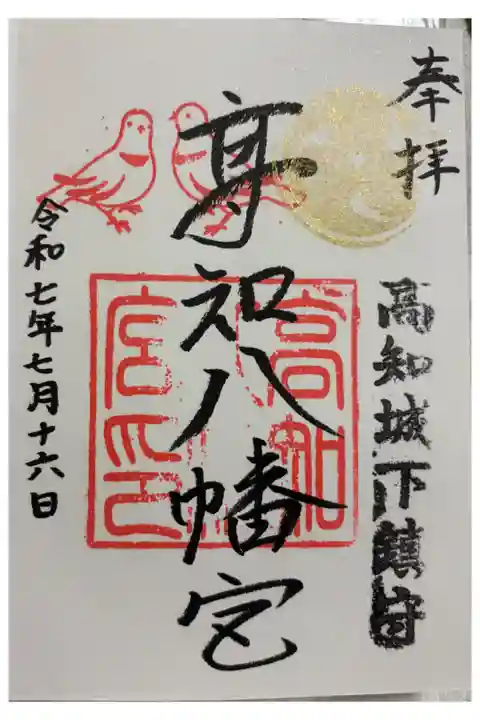 奉拝
高知城下鎮守
高知八幡宮
高知
宮印
令和七年七月十六日